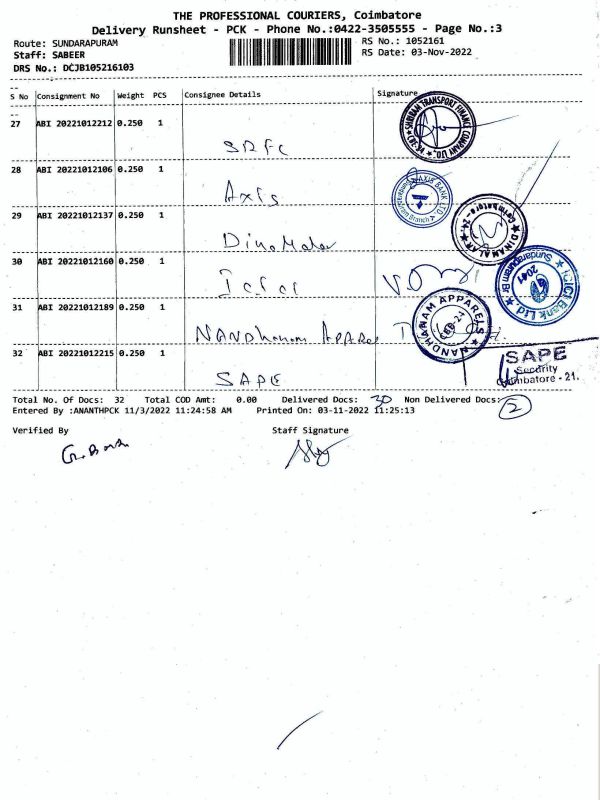 THE PROFESSIONAL COURIERS, Coimbatore
Delivery Runsheet - PCK - Phone No.:0422-3505555 - Page No.:3
Route: SUNDARAPURAM
RS No.: 1052161
Staff: SABEER
RS Date: 03-Nov-2022
DRS No.: DCJB105216103
S No Consignment No Weight PCS Consignee Details Signature
27 ABI 20221012212 0.250 1
SHRIRAM TRANSPORT FINANCE COMPANY LTD.
28 ABI 20221012106 0.250 1
Axis
AXIS BANK LTD.
29 ABI 20221012137 0.250 1
Dinamalar
DINAMALAR Coimbatore - 24.
30 ABI 20221012160 0.250 1
Icici
ICICI Bank Ltd Sundarapuram Br 2041
31 ABI 20221012189 0.250 1
NANDhanam APPARel
NANDHANAM APPARELS CBE-24
32 ABI 20221012215 0.250 1
SAPE
SAPE
Security
Coimbatore - 21.
Total No. Of Docs: 32 Total COD Amt: 0.00 Delivered Docs: 30 Non Delivered Docs: 2
Entered By :ANANTHPCK 11/3/2022 11:24:58 AM Printed On: 03-11-2022 11:25:13
Verified By Staff Signature